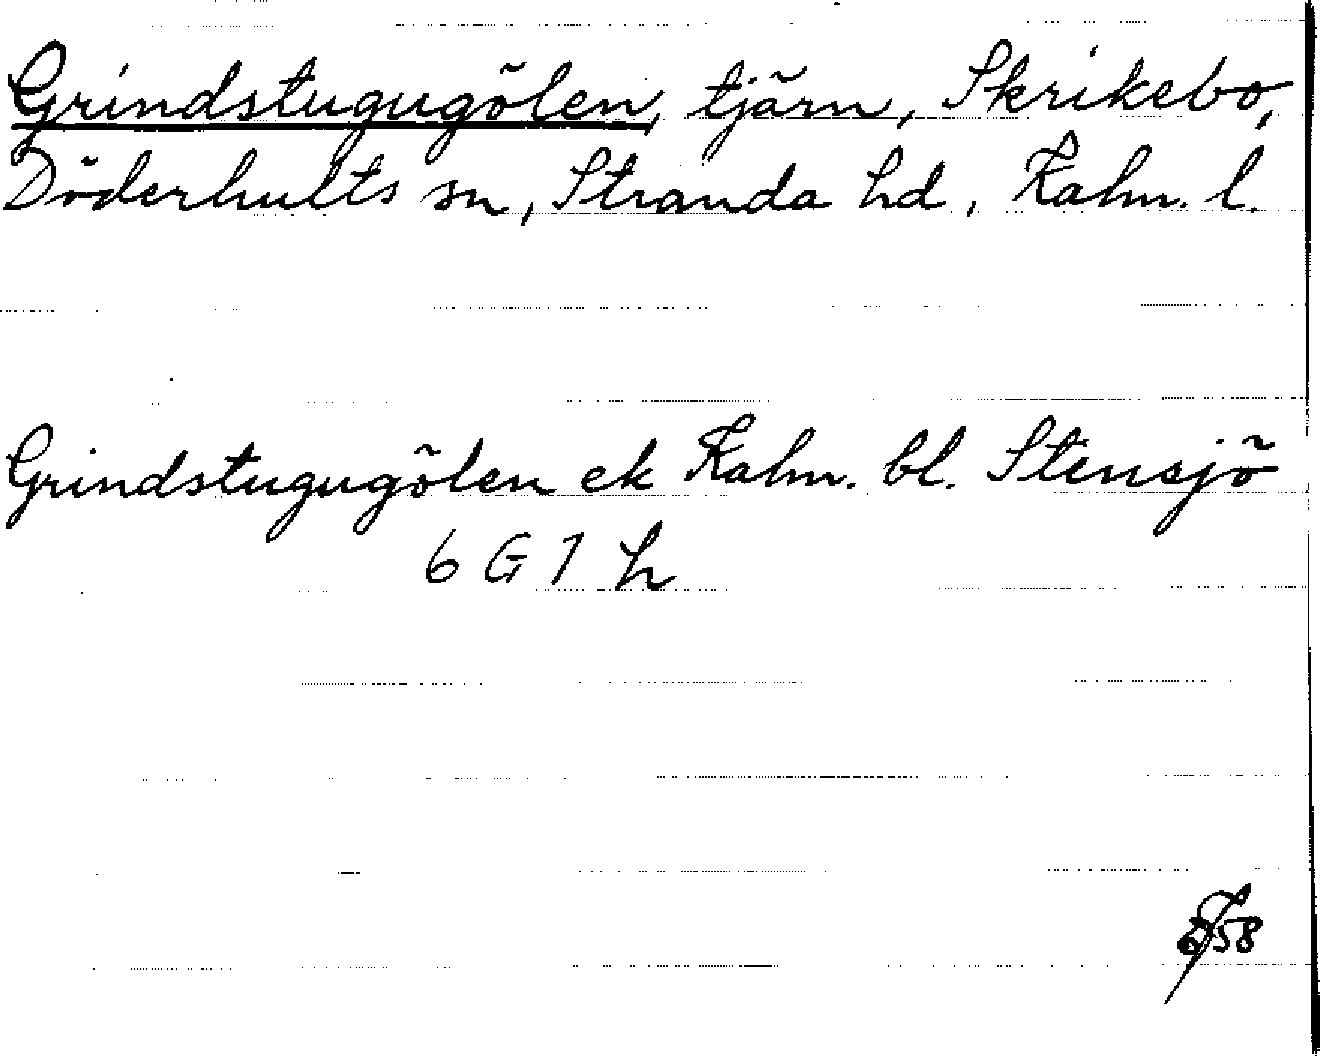 Grindstugugölen, tjärn, Skrikebo,
Döderhults sn, Stranda hd, Kalm. l.
Grindstugugölen ek Kalm. bl. Stensjö
6 G 1 h
58